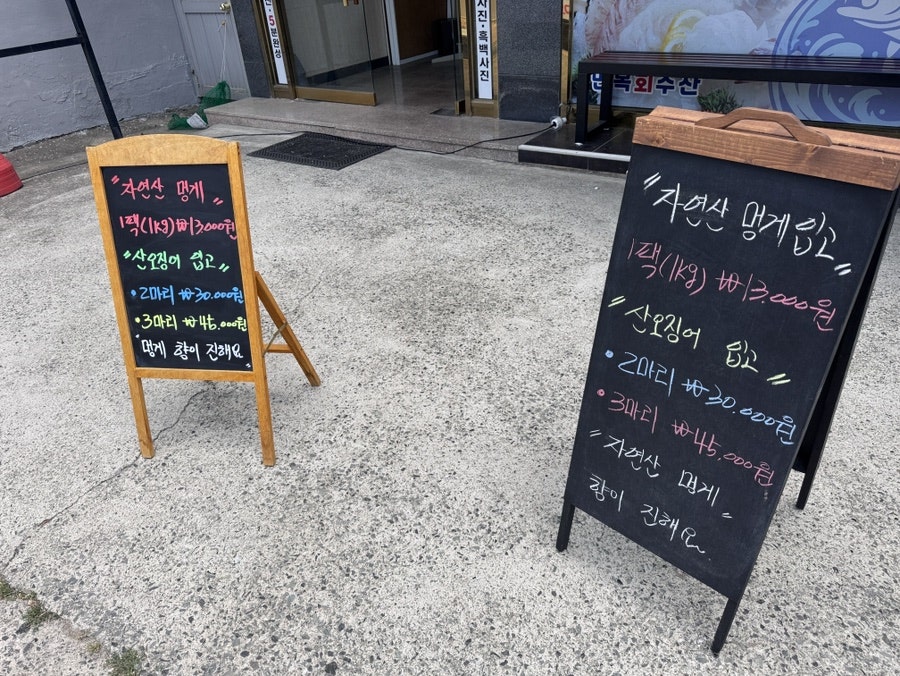 5분완성
사진·흑백사진
회
수산
〃자연산 멍게
1팩(1kg)₩13000원
〃산오징어 입고〃
•2마리 ₩30.000원
•3마리 ₩45.000원
"멍게 향이 진해요"
〃자연산 멍게입고〃
1팩(1kg) ₩13.000원
〃산오징어 입고〃
•2마리 ₩30.000원
•3마리 ₩45.000원
〃자연산 멍게
향이 진해요〃